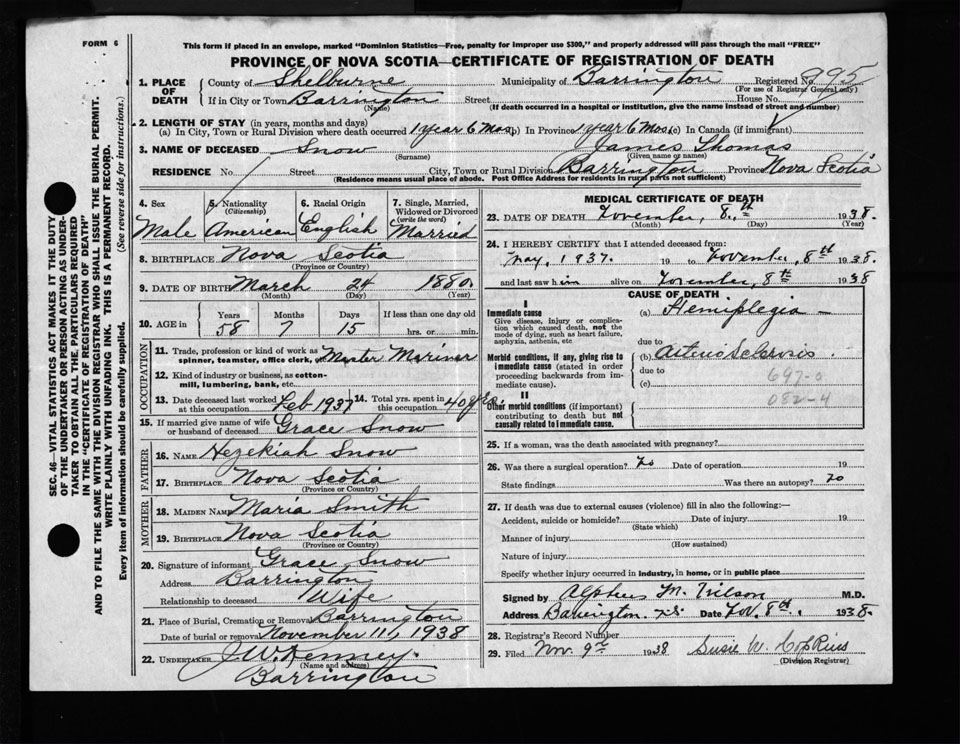 FORM 6
This form if placed in an envelope, marked "Dominion Statistics—Free, penalty for improper use $300," and properly addressed will pass through the mail "FREE"
PROVINCE OF NOVA SCOTIA—CERTIFICATE OF REGISTRATION OF DEATH
1. PLACE OF DEATH County of Shelburne Municipality of Barrington Registered No. 995
(For use of Registrar General only)
If in City or Town Barrington Street House No.
(Name) (If death occurred in a hospital or institution, give the name instead of street and number)
2. LENGTH OF STAY (in years, months and days)
(a) In City, Town or Rural Division where death occurred 1 year 6 Mos. (b) In Province 1 year 6 Mos. (c) In Canada (if immigrant)
3. NAME OF DECEASED Snow James Thomas
(Surname) (Given name or names)
RESIDENCE No. Street City, Town or Rural Division Barrington Province Nova Scotia
(Residence means usual place of abode. Post Office Address for residents in rural parts not sufficient)
4. Sex Male
5. Nationality (Citizenship) American
6. Racial Origin English
7. Single, Married, Widowed or Divorced (write the word) Married
8. BIRTHPLACE Nova Scotia
(Province or Country)
9. DATE OF BIRTH March 24 1880
(Month) (Day) (Year)
10. AGE in Years Months Days If less than one day old
58 7 15 hrs. or min.
OCCUPATION
11. Trade, profession or kind of work as spinner, teamster, office clerk, etc. Master Mariner
12. Kind of industry or business, as cotton-mill, lumbering, bank, etc.
13. Date deceased last worked at this occupation Feb 1937
14. Total yrs. spent in this occupation 40 yrs.
15. If married give name of wife or husband of deceased Grace Snow
FATHER
16. NAME Hezekiah Snow
17. BIRTHPLACE Nova Scotia
(Province or Country)
MOTHER
18. MAIDEN NAME Maria Smith
19. BIRTHPLACE Nova Scotia
(Province or Country)
20. Signature of informant Grace Snow
Address Barrington
Relationship to deceased Wife
21. Place of Burial, Cremation or Removal Barrington
Date of burial or removal November 11, 1938
22. UNDERTAKER J. W. Kenney.
(Name and address)
Barrington
MEDICAL CERTIFICATE OF DEATH
23. DATE OF DEATH November, 8th 1938.
(Month) (Day) (Year)
24. I HEREBY CERTIFY that I attended deceased from:
May, 1937. 19 to November, 8th 1938.
and last saw him alive on November, 8th 1938
CAUSE OF DEATH
I
Immediate cause
Give disease, injury or complication which caused death, not the mode of dying, such as heart failure, asphyxia, asthenia, etc
(a) Hemiplegia
due to
Morbid conditions, if any, giving rise to immediate cause (stated in order proceeding backwards from immediate cause).
(b) Arterio Sclerosis.
due to
697-0
(c)
082-4
II
Other morbid conditions (if important) contributing to death but not causally related to immediate cause.
25. If a woman, was the death associated with pregnancy?
26. Was there a surgical operation? No Date of operation 19
State findings Was there an autopsy? No
27. If death was due to external causes (violence) fill in also the following:—
Accident, suicide or homicide? Date of injury 19
(State which)
Manner of injury
(How sustained)
Nature of injury
Specify whether injury occurred in industry, in home, or in public place
Signed by Alpheus M. Wilson M.D.
Address Barrington. N.S. Date Nov. 8th, 1938.
28. Registrar's Record Number
29. Filed Nov. 9th 1938 Susie W. Hopkins
(Division Registrar)
SEC. 46—VITAL STATISTICS ACT MAKES IT THE DUTY
OF THE UNDERTAKER OR PERSON ACTING AS UNDER-
TAKER TO OBTAIN ALL THE PARTICULARS REQUIRED
IN THE "CERTIFICATE OF REGISTRATION OF DEATH"
AND TO FILE THE SAME WITH THE DIVISION REGISTRAR WHO SHALL ISSUE THE BURIAL PERMIT.
WRITE PLAINLY WITH UNFADING INK. THIS IS A PERMANENT RECORD.
Every item of information should be carefully supplied. (See reverse side for instructions.)